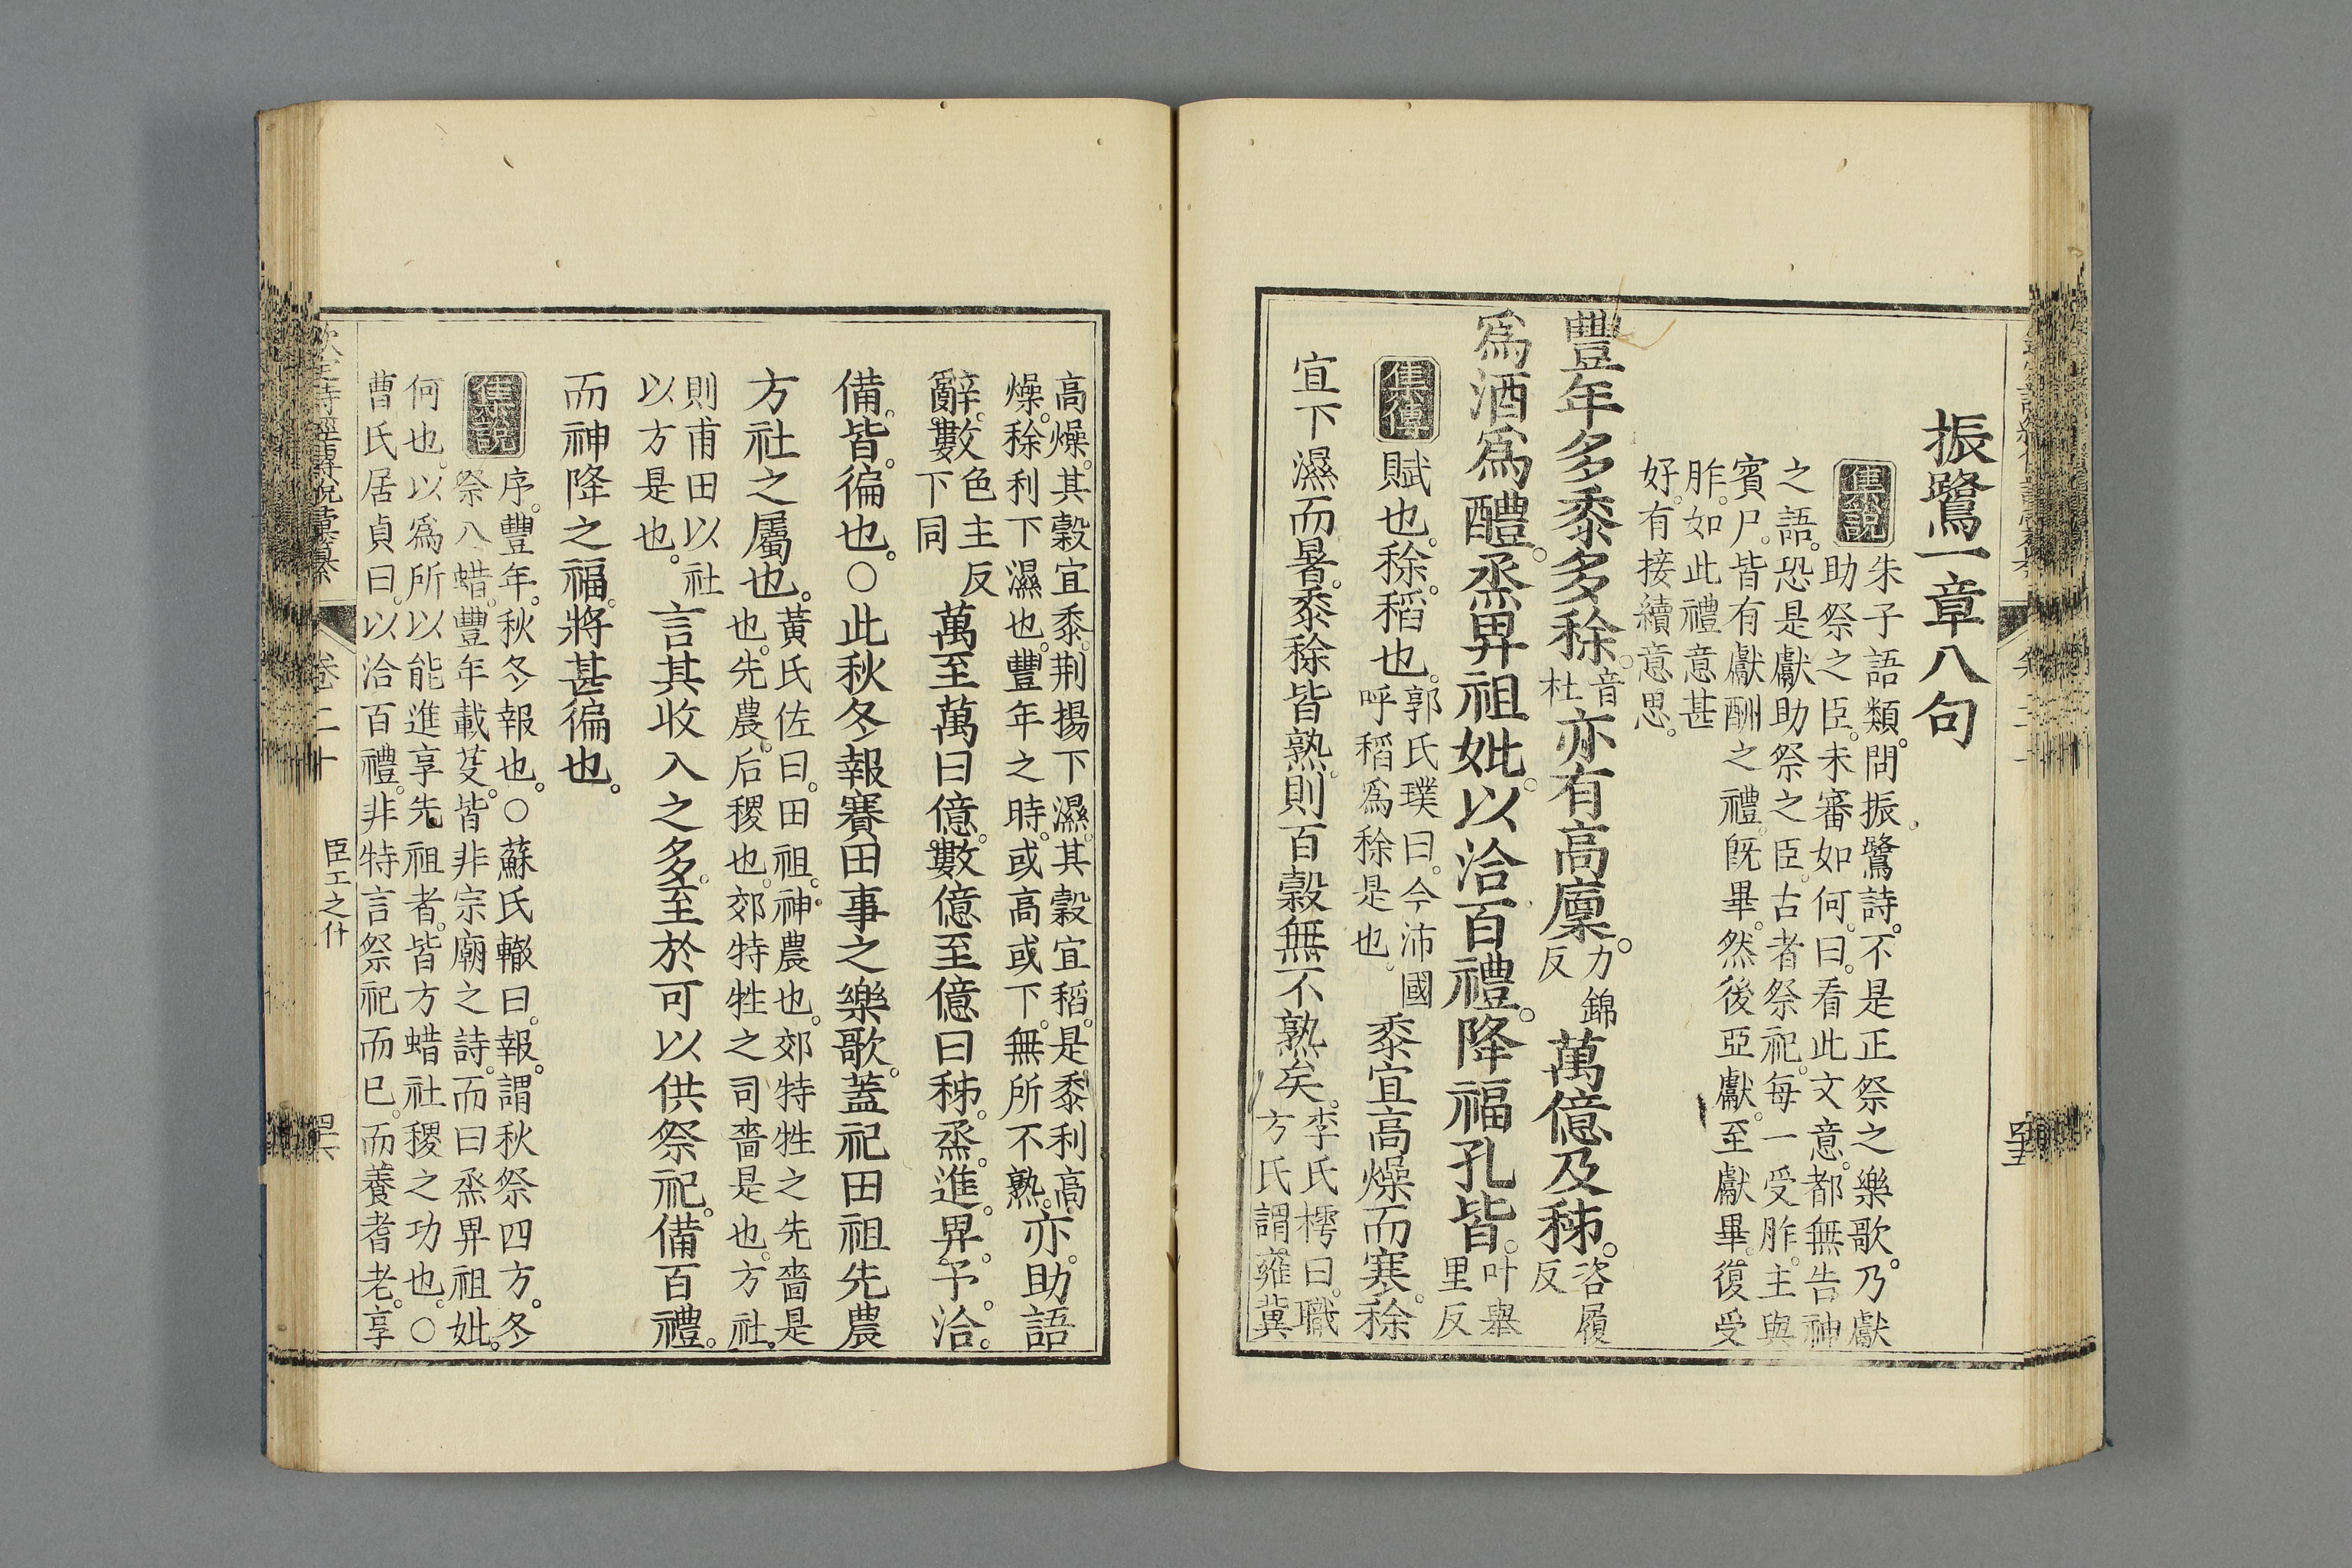 振鷺一章八句
集說
朱子語類。問振鷺詩。不是正祭之樂歌。乃獻
助祭之臣。未審如何。曰。看此文意。都無告神
之語。恐是獻助祭之臣。古者祭祀。每一受胙。主與
賓尸。皆有獻酬之禮。旣畢。然後亞獻。至獻畢。復受
胙。如此禮意甚
好。有接續意思。
豐年多黍多稌。音杜亦有高廩。力錦反萬億及秭。咨履反
爲酒爲醴。烝畀祖妣。以洽百禮。降福孔皆。叶舉里反
集傳
賦也。稌。稻也。郭氏璞曰。今沛國呼稻爲稌是也。黍宜高燥而寒。稌
宜下濕而暑。黍稌皆熟。則百穀無不熟矣。李氏樗曰。職方氏謂雍冀
高燥。其穀宜黍。荆揚下濕。其穀宜稻。是黍利高
燥。稌利下濕也。豐年之時。或高或下。無所不熟。亦。助語
辭。數色主反下同萬至萬曰億。數億至億曰秭。烝。進。畀。予。洽。
備。皆。徧也。○此秋冬報賽田事之樂歌。蓋祀田祖先農
方社之屬也。黃氏佐曰。田祖。神農也。郊特牲之先嗇是也。先農。后稷也。郊特牲之司嗇是也。方社。
則甫田以社以方是也。言其收入之多。至於可以供祭祀。備百禮。
而神降之福。將甚徧也。
集說
序。豐年。秋冬報也。○蘇氏轍曰。報。謂秋祭四方。冬
祭八蜡。豐年載芟。皆非宗廟之詩。而曰烝畀祖妣。
何也。以爲所以能進享先祖者。皆方蜡社稷之功也。○
曹氏居貞曰。以洽百禮。非特言祭祀而已。而養耆老。享
卷二十
臣工之什